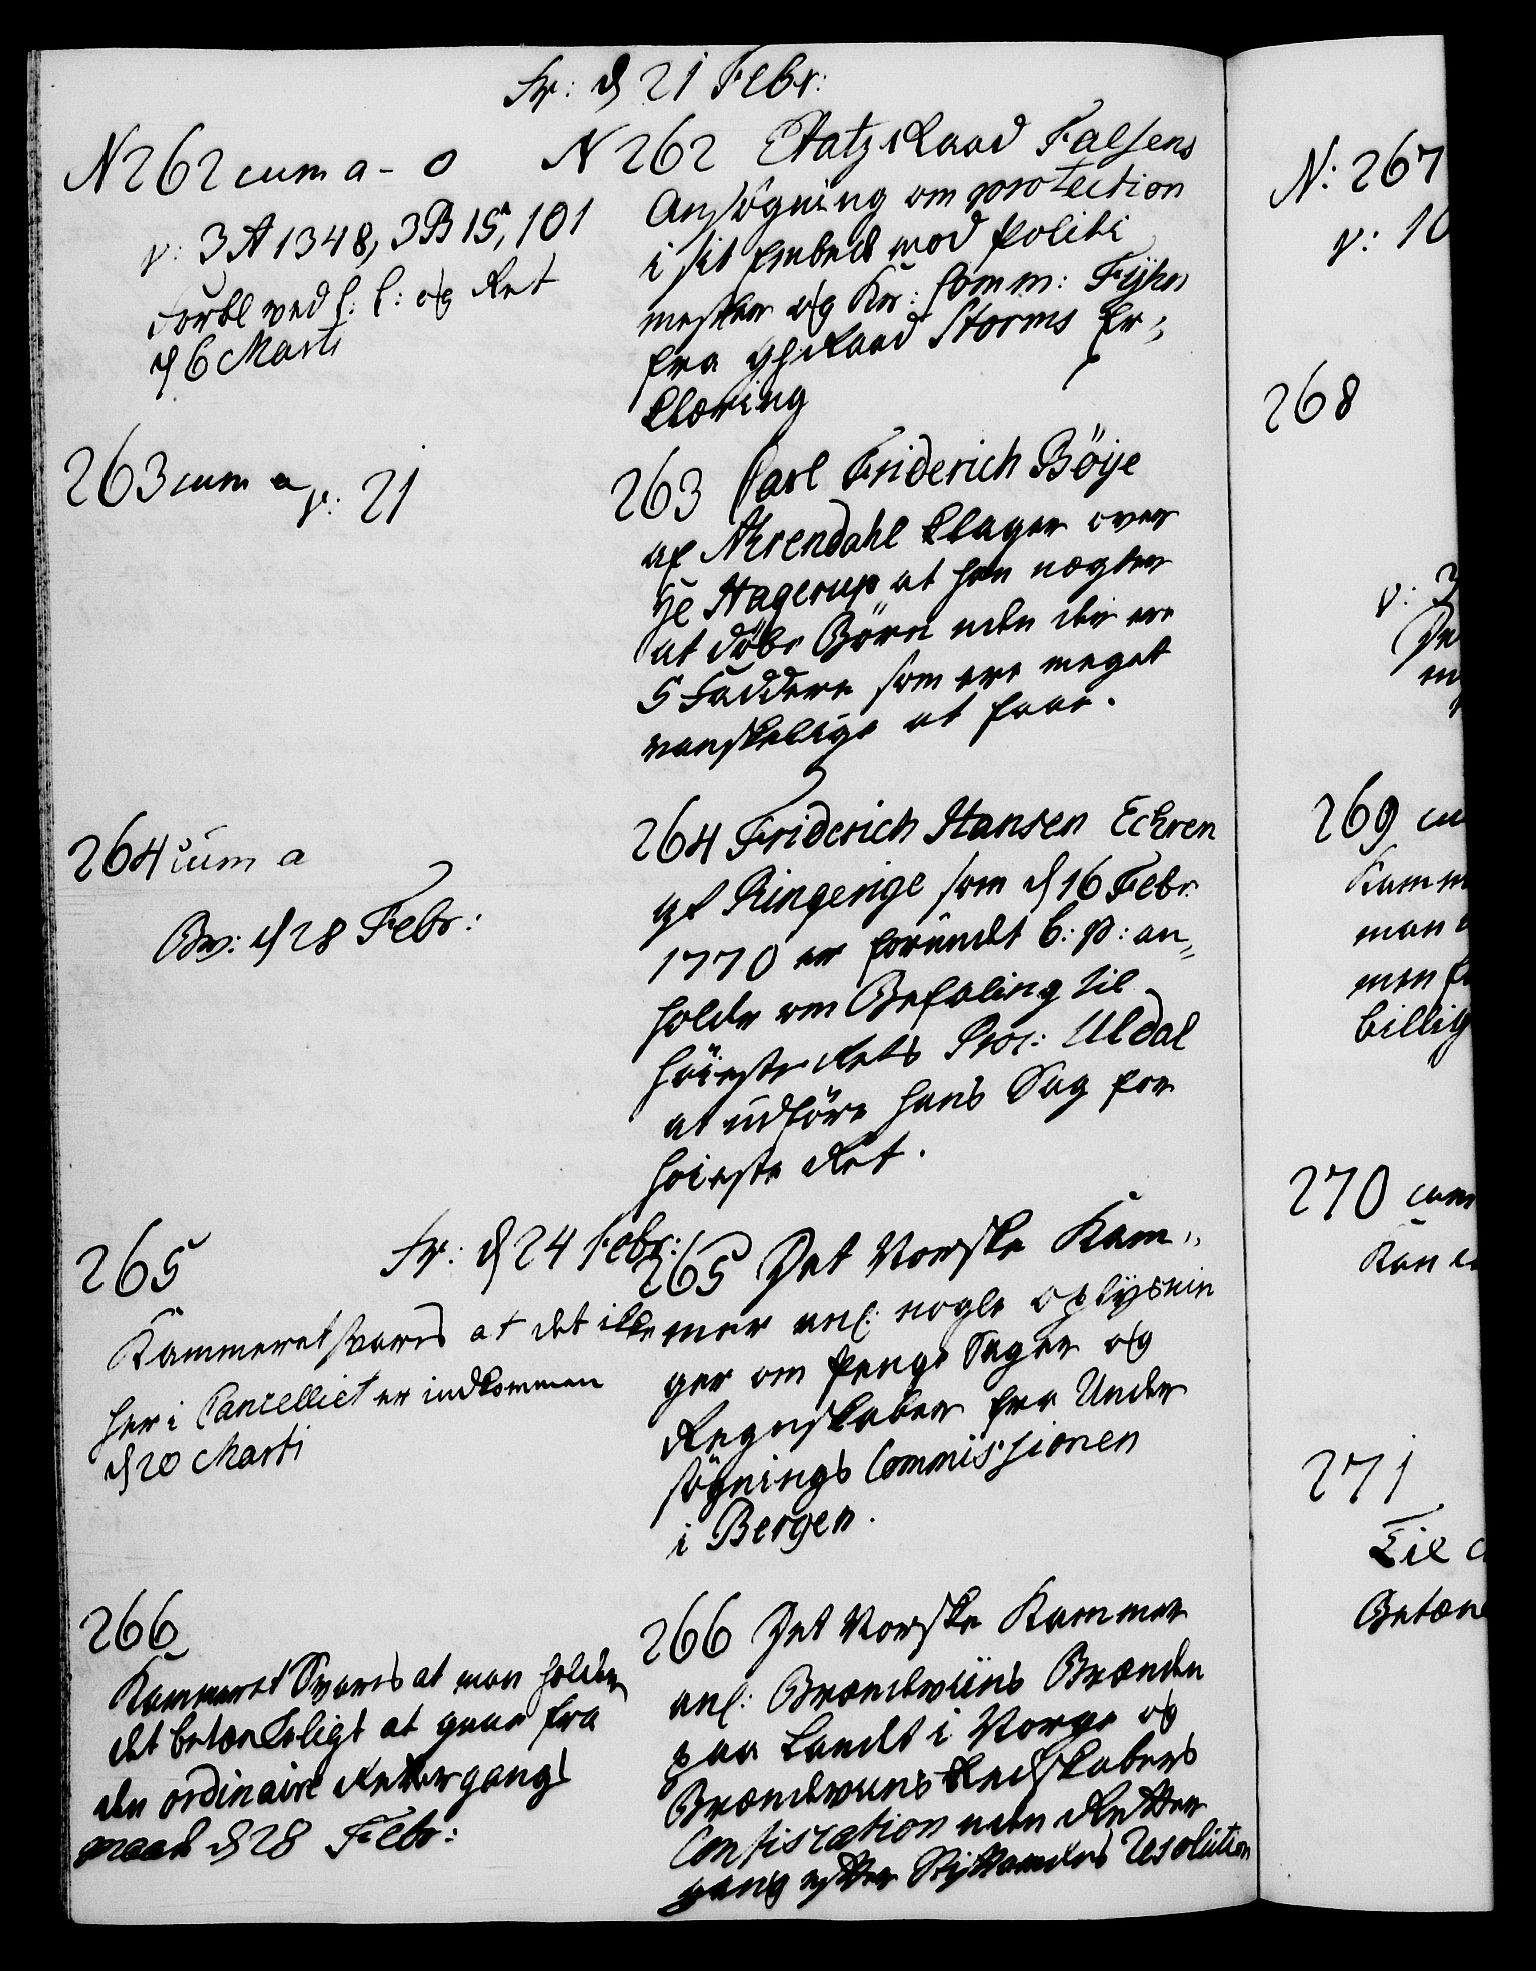 Fr: d 21 Febr:
N 262 cum a - o
v: 3A 1348, 3B 15, 101
Forbl ved f: f: og Ret
d 6 Marti
N 262 Etatz Raad Falsens
Ansøgning om protection
i sit Embed mod Politi
mester og Kr: Comm: Fyhn
fra Raad Storms Er,,
klæring
263 cum a v: 21
263 Carl Friderich Böye
af Ahrendahl klager over
Hr Hagerup at han nægter
at döbe Börn uden der ere
5 Faddere som ere meget
vanskelige at faae.
264 cum a
Bev: d 28 Febr:
264 Friderich Hansen Echren
af Ringerige som d 16 Febr.
1770 er forundt b: p: an,,
holder om Befaling til
höieste Rets Proc: Uldal
at udföre hans Sag for
höieste Ret.
Fr: d 24 Febr:
265
Kammeret svares at det ikke
her i Cancelliet er indkommen
d 20 Marti
265 Det Norske Kam,,
mer anl: nogle oplysnin
ger om Penge Sager og
Regnskaber fra Under
søgnings Commissionen
i Bergen.
266
Kammeret Svares at man holder
det betænkeligt at gaae fra
den ordinaire Rettergangs
maade d 28 Febr:
266 Det Norske Kammer
anl: Brændeviins Brænden
paa Landet i Norge og
Brændeviins Redskabers
Confiscation uden Retter
gang efter Stiftamtets Resolution
N: 267
v: 10
268
v: 3
269 cu
Kamm
man
men
billig
270 cum
Kan
271
Til
Betæn